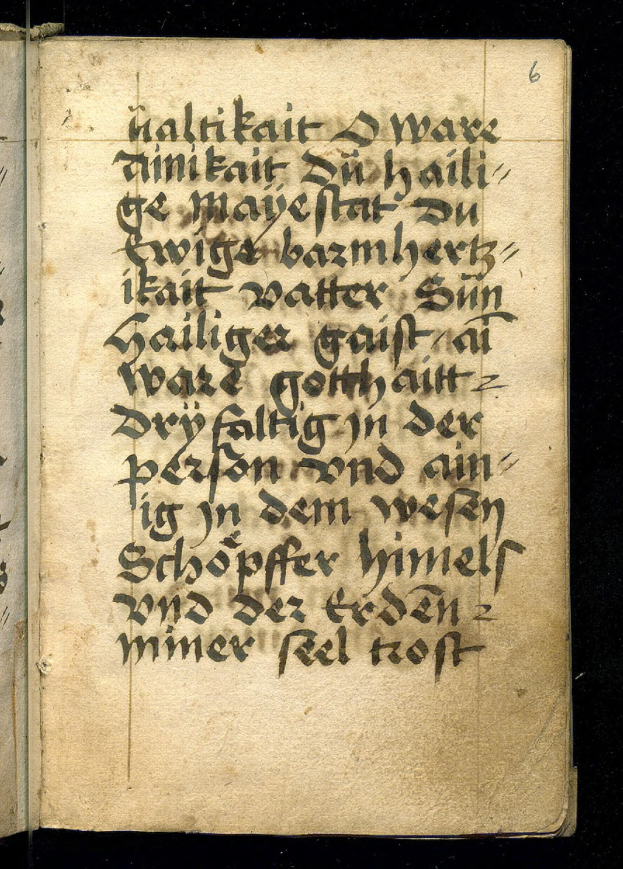 6
ualtikait O ware
ainikait Dü haili⸗
ge mayestat Du
Ewige barmhertz⸗
ikait vatter Sün
hailiger gaist / ai᷑
ware gotthaitt
Dryfaltig jn der
person vnd ain⸗
ig jn dem wesen
Schoͤpffer himels
vnd der Erden
miner seel trost